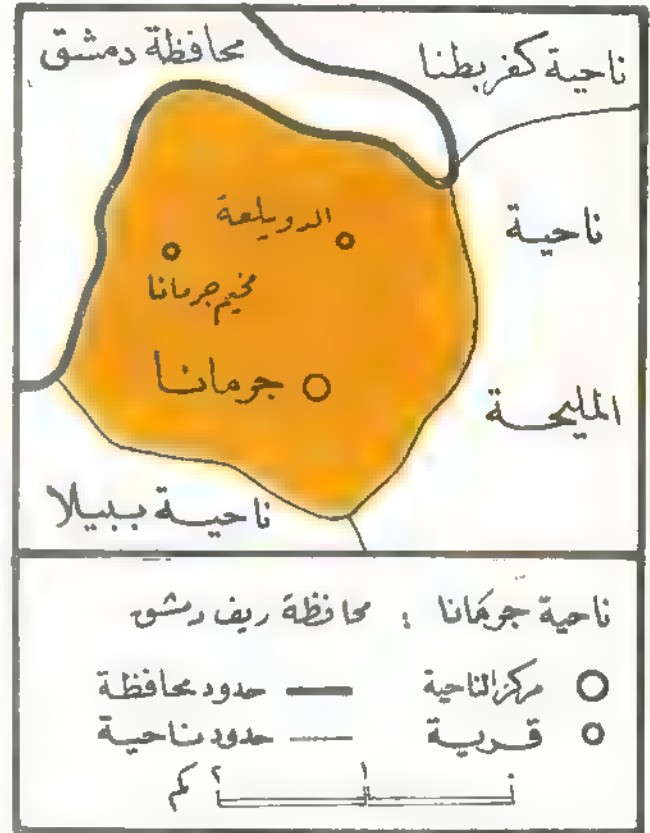 محافظة دمشق
ناحية كفربطنا
ناحية
المليحة
الدويلعة
مخيم جرمانا
جرمانا
ناحية ببيلا
ناحية جرمانا : محافظة ريف دمشق
مركز الناحية
حدود محافظة
قرية
حدود ناحية
٠ ١ ٢ كم